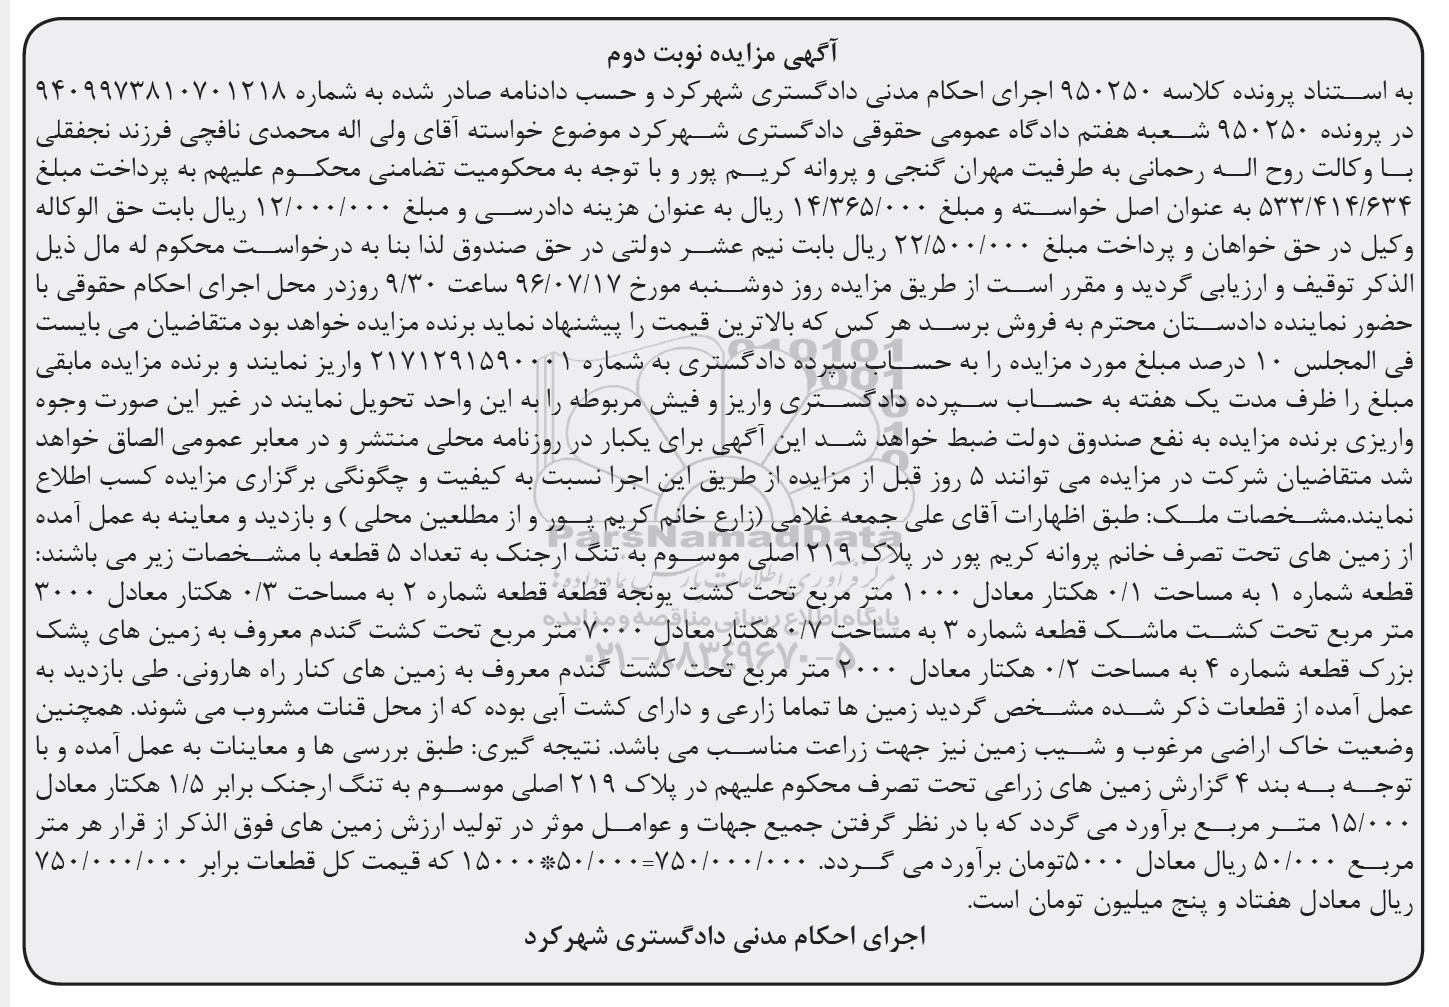 آگهی مزایده نوبت دوم
به استناد پرونده کلاسه ۹۵۰۲۵۰ اجرای احکام مدنی دادگستری شهرکرد و حسب دادنامه صادر شده به شماره ۹۴۰۹۹۷۳۸۱۰۷۰۱۲۱۸
در پرونده ۹۵۰۲۵۰ شعبه هفتم دادگاه عمومی حقوقی دادگستری شهرکرد موضوع خواسته آقای ولی اله محمدی نافچی فرزند نجفقلی
با وکالت روح اله رحمانی به طرفیت مهران گنجی و پروانه کریم پور و با توجه به محکومیت تضامنی محکوم علیهم به پرداخت مبلغ
۵۳۳/۴۱۴/۶۳۴ به عنوان اصل خواسته و مبلغ ۱۴/۳۶۵/۰۰۰ ریال به عنوان هزینه دادرسی و مبلغ ۱۲/۰۰۰/۰۰۰ ریال بابت حق الوکاله
وکیل در حق خواهان و پرداخت مبلغ ۲۲/۵۰۰/۰۰۰ ریال بابت نیم عشر دولتی در حق صندوق لذا بنا به درخواست محکوم له مال ذیل
الذکر توقیف و ارزیابی گردید و مقرر است از طریق مزایده روز دوشنبه مورخ ۹۶/۰۷/۱۷ ساعت ۹/۳۰ روزدر محل اجرای احکام حقوقی با
حضور نماینده دادستان محترم به فروش برسد هر کس که بالاترین قیمت را پیشنهاد نماید برنده مزایده خواهد بود متقاضیان می بایست
فی المجلس ۱۰ درصد مبلغ مورد مزایده را به حساب سپرده دادگستری به شماره ۲۱۷۱۲۹۱۵۹۰۰۰۱ واریز نمایند و برنده مزایده مابقی
مبلغ را ظرف مدت یک هفته به حساب سپرده دادگستری واریز و فیش مربوطه را به این واحد تحویل نمایند در غیر این صورت وجوه
واریزی برنده مزایده به نفع صندوق دولت ضبط خواهد شد این آگهی برای یکبار در روزنامه محلی منتشر و در معابر عمومی الصاق خواهد
شد متقاضیان شرکت در مزایده می توانند ۵ روز قبل از مزایده از طریق این اجرا نسبت به کیفیت و چگونگی برگزاری مزایده کسب اطلاع
نمایند.مشخصات ملک: طبق اظهارات آقای علی جمعه غلامی (زارع خانم کریم پور و از مطلعین محلی ) و بازدید و معاینه به عمل آمده
از زمین های تحت تصرف خانم پروانه کریم پور در پلاک ۲۱۹ اصلی موسوم به تنگ ارجنک به تعداد ۵ قطعه با مشخصات زیر می باشند:
قطعه شماره ۱ به مساحت ۰/۱ هکتار معادل ۱۰۰۰ متر مربع تحت کشت یونجه قطعه قطعه شماره ۲ به مساحت ۰/۳ هکتار معادل ۳۰۰۰
متر مربع تحت کشت ماشک قطعه شماره ۳ به مساحت ۰/۷ هکتار معادل ۷۰۰۰ متر مربع تحت کشت گندم معروف به زمین های پشک
بزرک قطعه شماره ۴ به مساحت ۰/۲ هکتار معادل ۲۰۰۰ متر مربع تحت کشت گندم معروف به زمین های کنار راه هارونی. طی بازدید به
عمل آمده از قطعات ذکر شده مشخص گردید زمین ها تماما زارعی و دارای کشت آبی بوده که از محل قنات مشروب می شوند. همچنین
وضعیت خاک اراضی مرغوب و شیب زمین نیز جهت زراعت مناسب می باشد. نتیجه گیری: طبق بررسی ها و معاینات به عمل آمده و با
توجه به بند ۴ گزارش زمین های زراعی تحت تصرف محکوم علیهم در پلاک ۲۱۹ اصلی موسوم به تنگ ارجنک برابر ۱/۵ هکتار معادل
۱۵/۰۰۰ متر مربع برآورد می گردد که با در نظر گرفتن جمیع جهات و عوامل موثر در تولید ارزش زمین های فوق الذکر از قرار هر متر
مربع ۵۰/۰۰۰ ریال معادل ۵۰۰۰تومان برآورد می گردد. ۷۵۰/۰۰۰/۰۰۰=۵۰/۰۰۰*۱۵۰۰۰ که قیمت کل قطعات برابر ۷۵۰/۰۰۰/۰۰۰
ریال معادل هفتاد و پنج میلیون تومان است.
اجرای احکام مدنی دادگستری شهرکرد
ParsNamadData
مرکز فرآوری اطلاعات پارس نماد داده ها
پایگاه اطلاع رسانی مناقصه و مزایده
۰۲۱-۸۸۳۴۹۶۷۰-۵